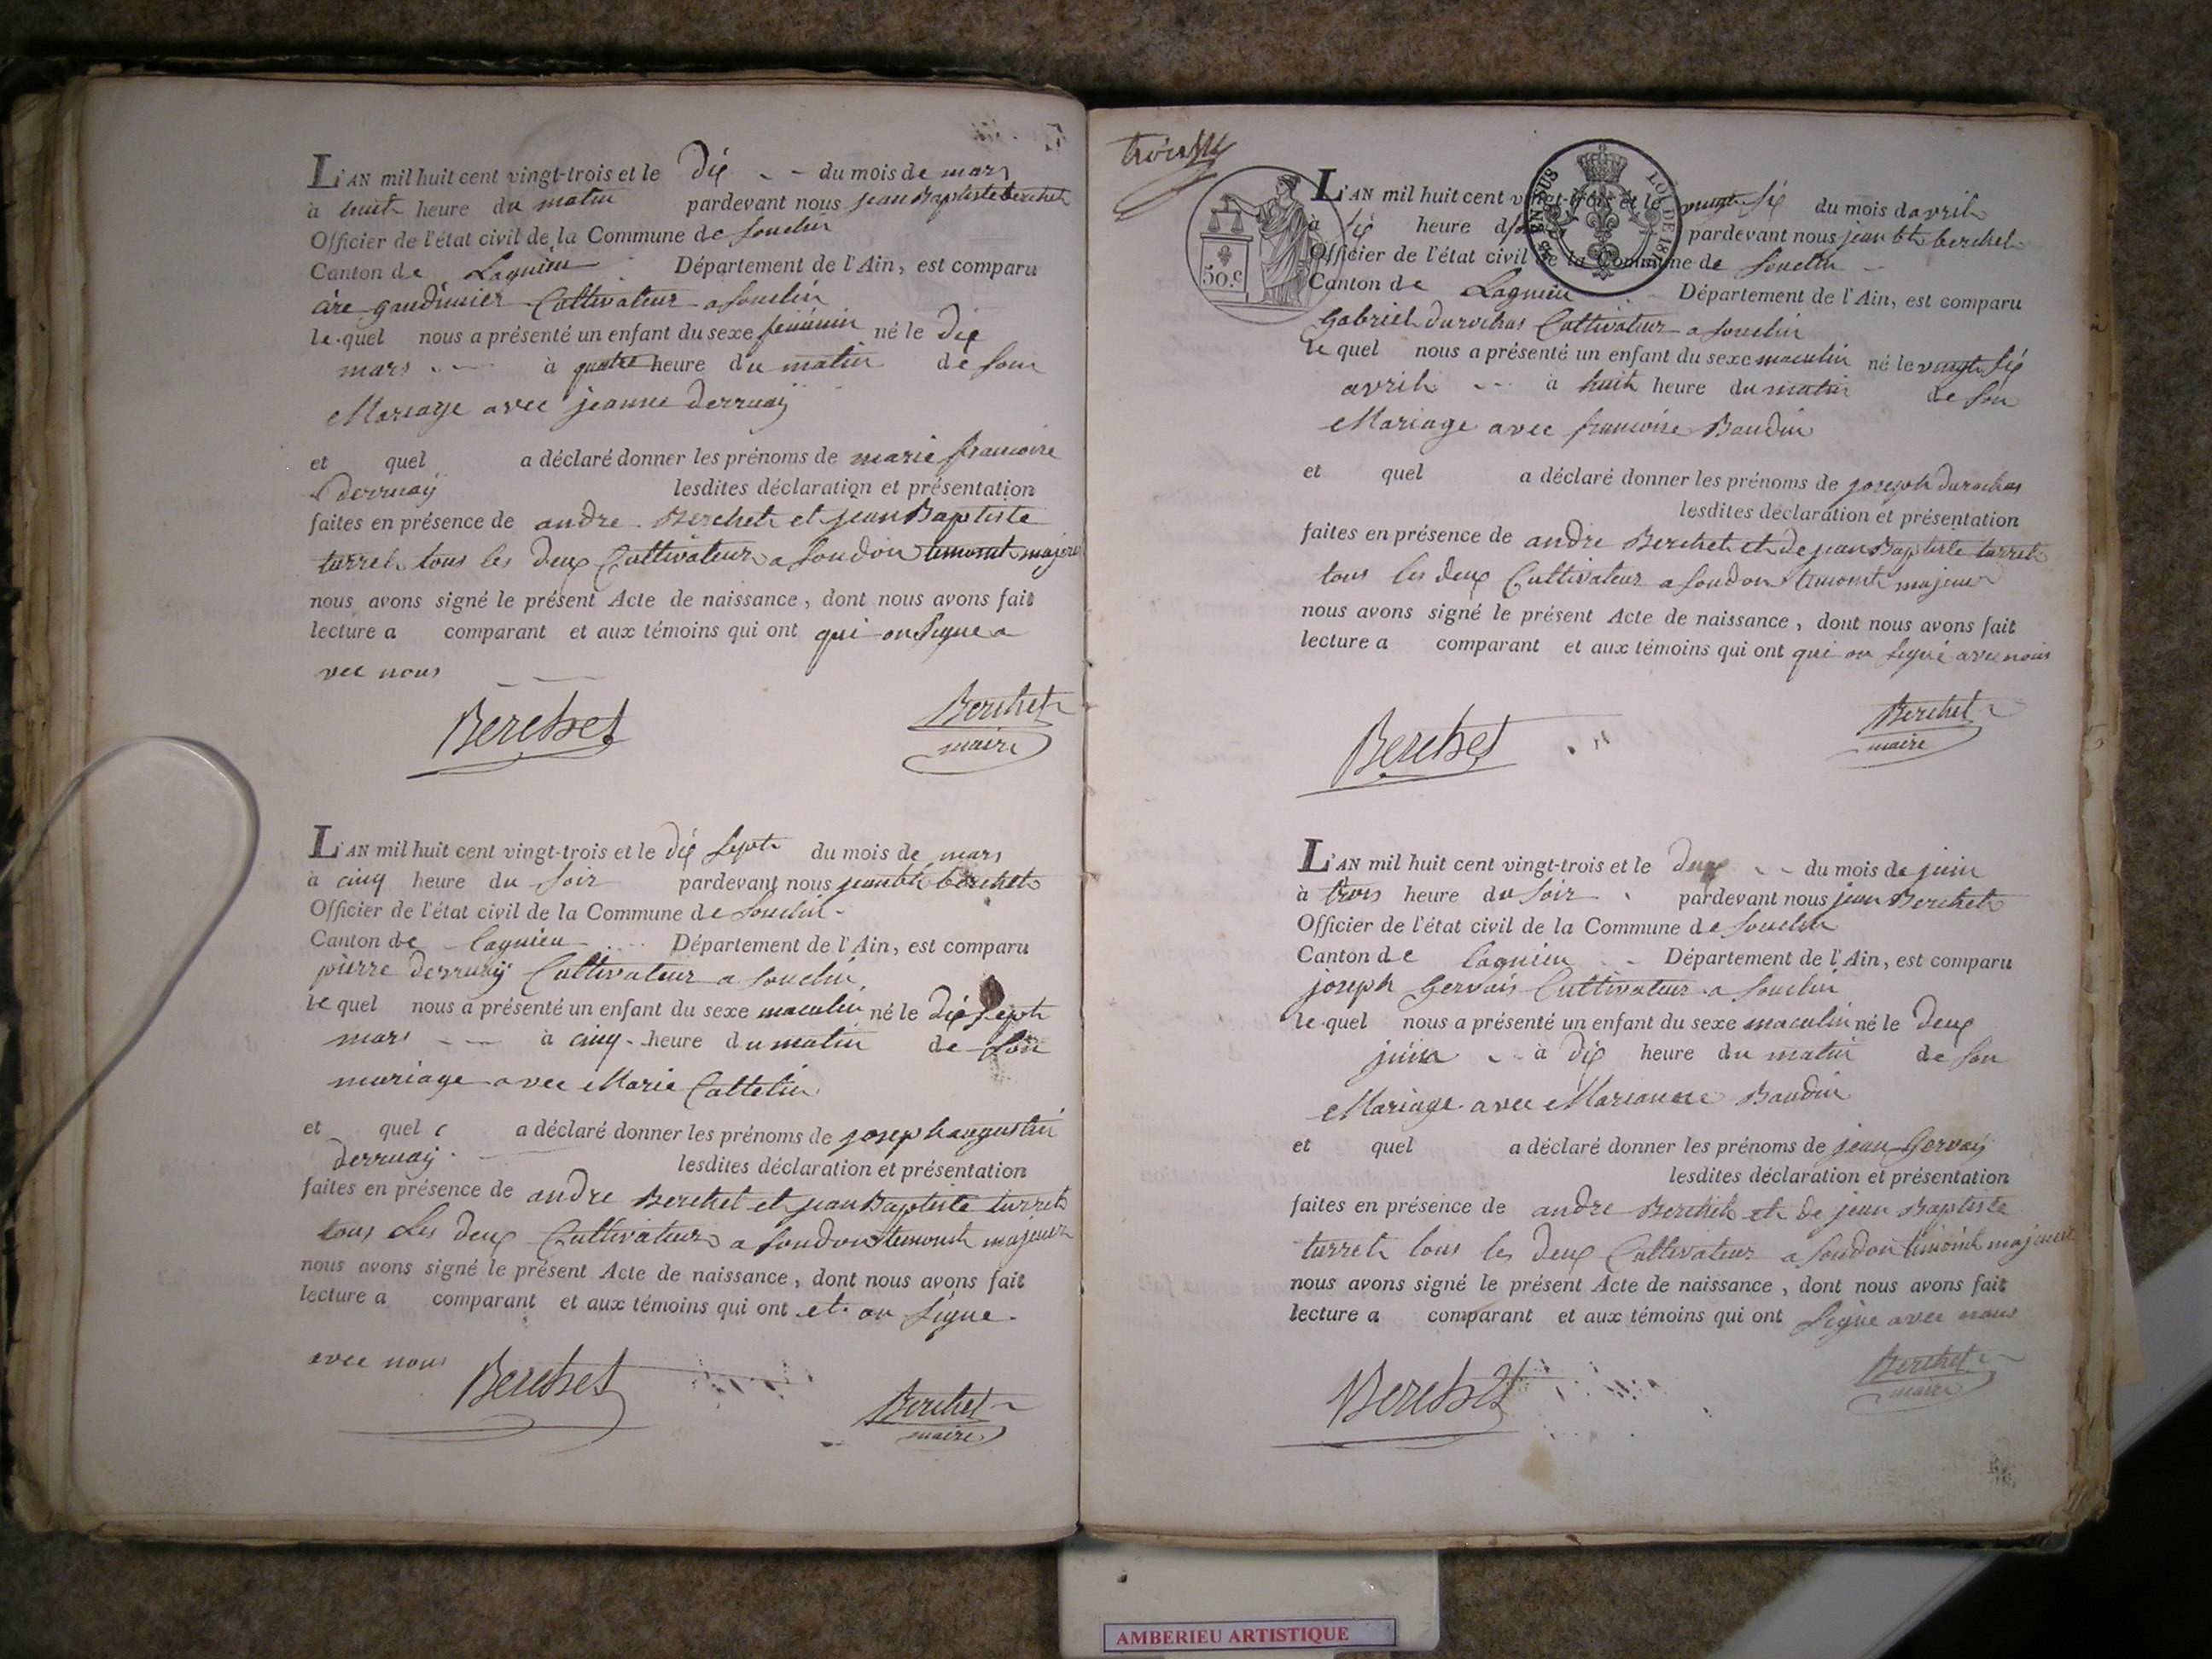 L'AN mil huit cent vingt-trois et le dix du mois de mars
à huit heure du matin pardevant nous jean Baptiste berchet
Officier de l'état civil de la Commune de Souclin
Canton de Lagnieu Département de l'Ain, est comparu
cire gaudinier Cultivateur a Souclin
le quel nous a présenté un enfant du sexe feminin né le dix
mars à quatre heure du matin de son
Mariage avec jeanne derruaÿ
et quel a déclaré donner les prénoms de marie francoise
derruaÿ lesdites déclaration et présentation
faites en présence de andre Berchet et jean Baptiste
turret tous les deux Cultivateur a Soudon temoint majeur
nous avons signé le présent Acte de naissance, dont nous avons fait
lecture a comparant et aux témoins qui ont qui on Signe a
vec nous
Berchet
Berchet
maire
L'AN mil huit cent vingt-trois et le dix Sept du mois de mars
à cinq heure du Soir pardevant nous jean bte berchet
Officier de l'état civil de la Commune de Souclin
Canton de lagnieu Département de l'Ain, est comparu
pierre derruaÿ Cultivateur a Souclin
le quel nous a présenté un enfant du sexe maculin né le dix Sept
mars à cinq heure du matin de Son
mariage avec Marie Cattelin
et quel a déclaré donner les prénoms de joseph augustin
derruaÿ lesdites déclaration et présentation
faites en présence de andre Berchet et jean Baptiste turret
tous les deux Cultivateur a Soudon temoint majeur
nous avons signé le présent Acte de naissance, dont nous avons fait
lecture a comparant et aux témoins qui ont et on Signe
avec nous
Berchet
Berchet
maire
50.c
EN SUS
LOI DE 18
L'AN mil huit cent vingt-trois et le vingt Six du mois d avril
à Six heure du pardevant nous jean bte berchet
Officier de l'état civil de la Commune de Souclin
Canton de Lagnieu Département de l'Ain, est comparu
Gabriel durochas Cultivateur a Souclin
le quel nous a présenté un enfant du sexe maculin né le vingt Six
avril à huit heure du matin de Son
Mariage avec francoise Baudin
et quel a déclaré donner les prénoms de joseph durochas
lesdites déclaration et présentation
faites en présence de andre Berchet et de jean Baptiste turret
tous les deux Cultivateur a Soudon temoint majeur
nous avons signé le présent Acte de naissance, dont nous avons fait
lecture a comparant et aux témoins qui ont qui on Signé avec nous
Berchet
Berchet
maire
L'AN mil huit cent vingt-trois et le deux du mois de juin
à trois heure du Soir pardevant nous jean Berchet
Officier de l'état civil de la Commune de Souclin
Canton de lagnieu Département de l'Ain, est comparu
joseph Gervais Cultivateur a Souclin
le quel nous a présenté un enfant du sexe maculin né le deux
juin à dix heure du matin de Son
Mariage avec Marianne Baudin
et quel a déclaré donner les prénoms de jean Gervaÿ
lesdites déclaration et présentation
faites en présence de andre Berchet et de jean Baptiste
turret tous les deux Cultivateur a Soudon temoint majeur
nous avons signé le présent Acte de naissance, dont nous avons fait
lecture a comparant et aux témoins qui ont Signe avec nous
Berchet
Berchet
maire
AMBERIEU ARTISTIQUE